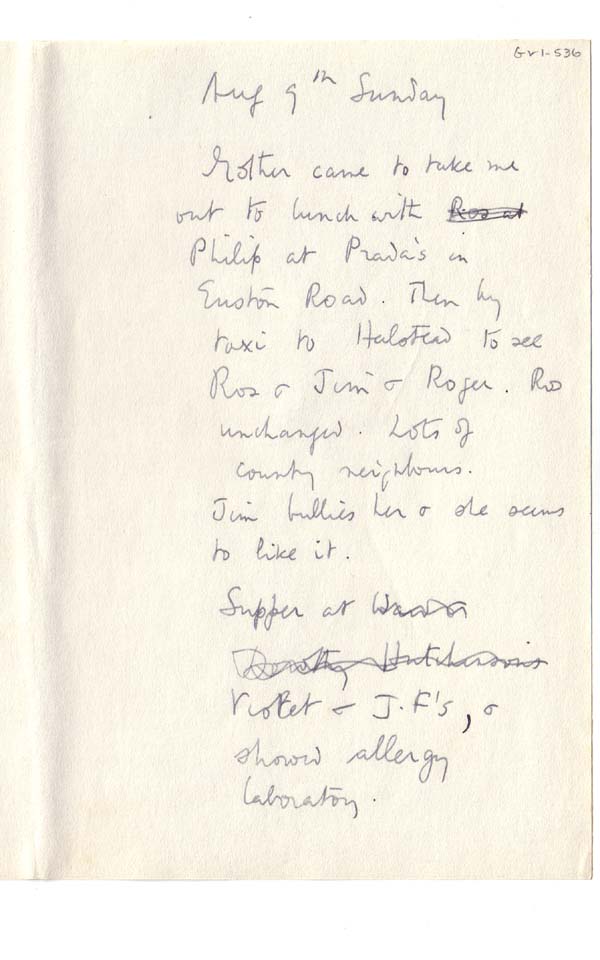 Gv1-536
Aug 9th Sunday
Mother came to take me
out to lunch with Ros at
Philip at Prada's in
Euston Road. Then by
taxi to Halstead to see
Ros & Jim & Roger. Ros
unchanged. Lots of
county neighbours.
Jim bullies her & she seems
to like it.
Supper at
Dorothy Hutchinson's
Violet & J.F's, &
showed allergy
laboratory.